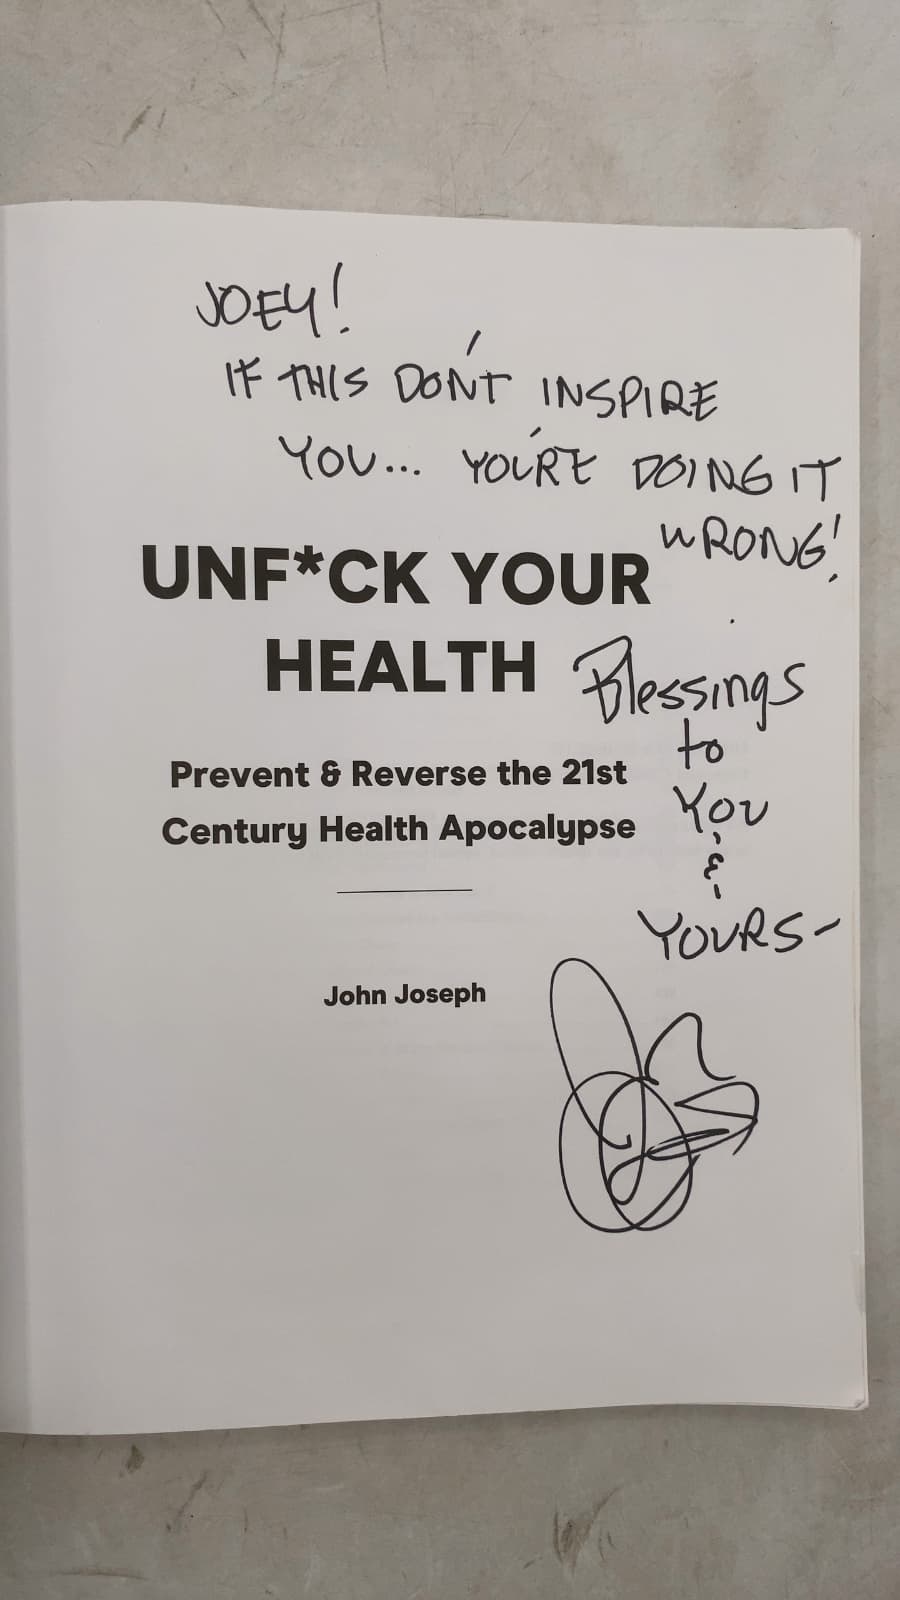 JOEY!
IF THIS DON'T INSPIRE
YOU... YOU'RE DOING IT
WRONG!
UNF*CK YOUR
HEALTH
Prevent & Reverse the 21st
Century Health Apocalypse
John Joseph
Blessings
to
YOU
&
YOURS-